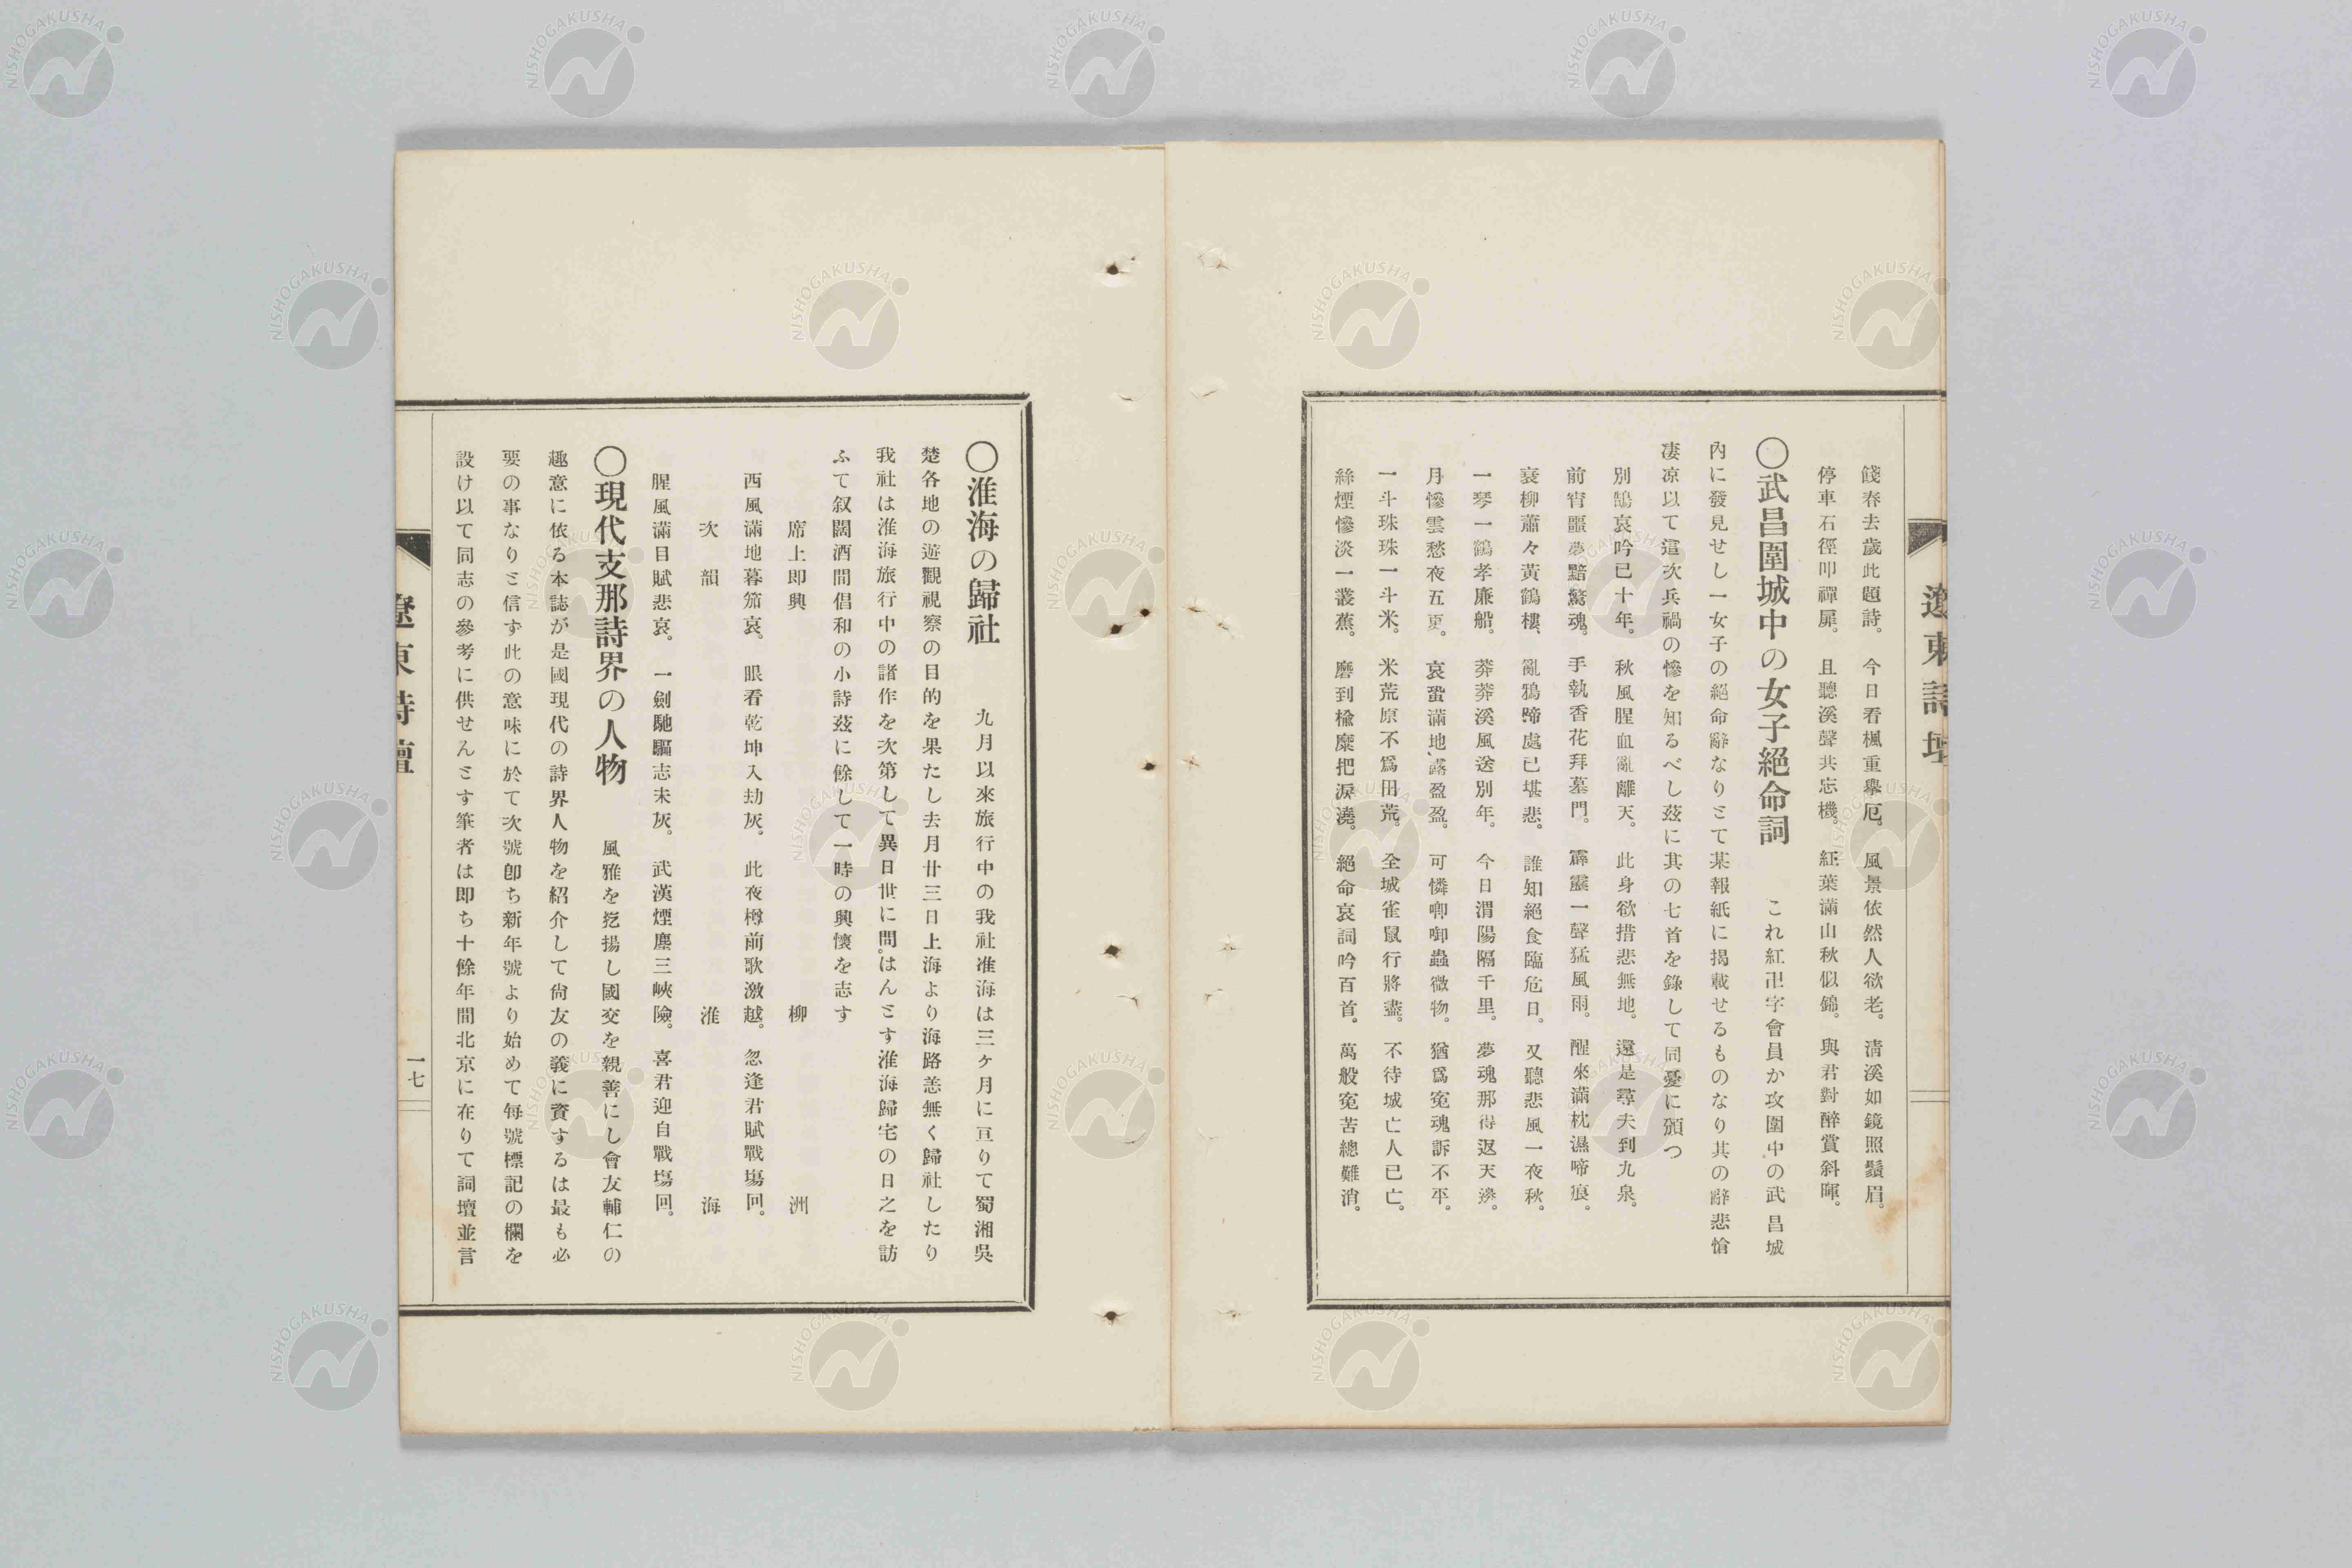 餞春去歲此題詩。今日看楓重擧巵。風景依然人欲老。淸溪如鏡照鬚眉。
停車石徑叩禪扉。且聽溪聲共忘機。紅葉滿山秋似錦。與君對醉賞斜暉。
〇武昌圍城中の女子絕命詞 これ紅卍字會員か攻圍中の武昌城
內に發見せし一女子の絕命辭なりとて某報紙に揭載せるものなり其の辭悲愴
凄凉以て這次兵禍の慘を知るべし玆に其の七首を錄して同憂に頒つ
別鵠哀吟已十年。秋風腥血亂離天。此身欲措悲無地。還是尋夫到九泉。
前宵噩夢黯驚魂。手執香花拜墓門。霹靂一聲猛風雨。醒來滿枕濕啼痕。
衰柳蕭々黃鶴樓、亂鴉啼處已堪悲。誰知絕食臨危日。又聽悲風一夜秋。
一琴一鶴孝廉船。莽莽溪風送別年。今日渭陽隔千里。夢魂那得返天邊。
月慘雲愁夜五更。哀蛩滿地、露盈盈。可憐唧唧蟲微物。猶爲寃魂訴不平。
一斗珠珠一斗米。米荒原不爲田荒。全城雀鼠行將盡。不待城亡人已亡。
絲煙慘淡一叢蕉。磨到楡糜把淚澆。絕命哀詞吟百首。萬般寃苦總難消。
遼東詩壇
〇淮海の歸社 九月以來旅行中の我社淮海は三ケ月に亘りて蜀湘吳
楚各地の遊觀視察の目的を果たし去月廿三日上海より海路恙無く歸社したり
我社は淮海旅行中の諸作を次第して異日世に問はんとす淮海歸宅の日之を訪
ふて叙闊酒間倡和の小詩玆に餘して一時の興懷を志す
席上卽興 柳洲
西風滿地暮笳哀。眼看乾坤入劫灰。此夜樽前歌激越。忽逢君賦戰塲回。
次韻 淮海
腥風滿目賦悲哀。一劍馳驅志未灰。武漢煙塵三峽險。喜君迎自戰塲回。
〇現代支那詩界の人物 風雅を扢揚し國交を親善にし會友輔仁の
趣意に依る本誌が是國現代の詩界人物を紹介して尙友の義に資するは最も必
要の事なりと信ず此の意味に於て次號卽ち新年號より始めて每號標記の欄を
設け以て同志の參考に供せんとす筆者は卽ち十餘年間北京に在りて詞壇並言
遼東詩壇
一七
NISHOGAKUSHA